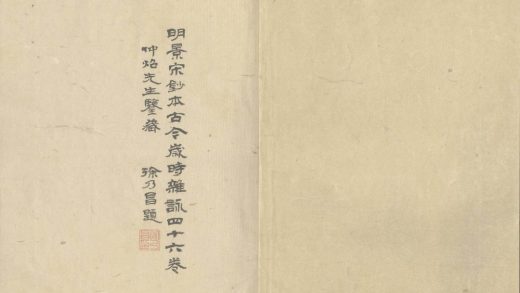 明景宋鈔本古今歲時雜詠四十六卷
仲炤先生鑒藏
徐乃昌題